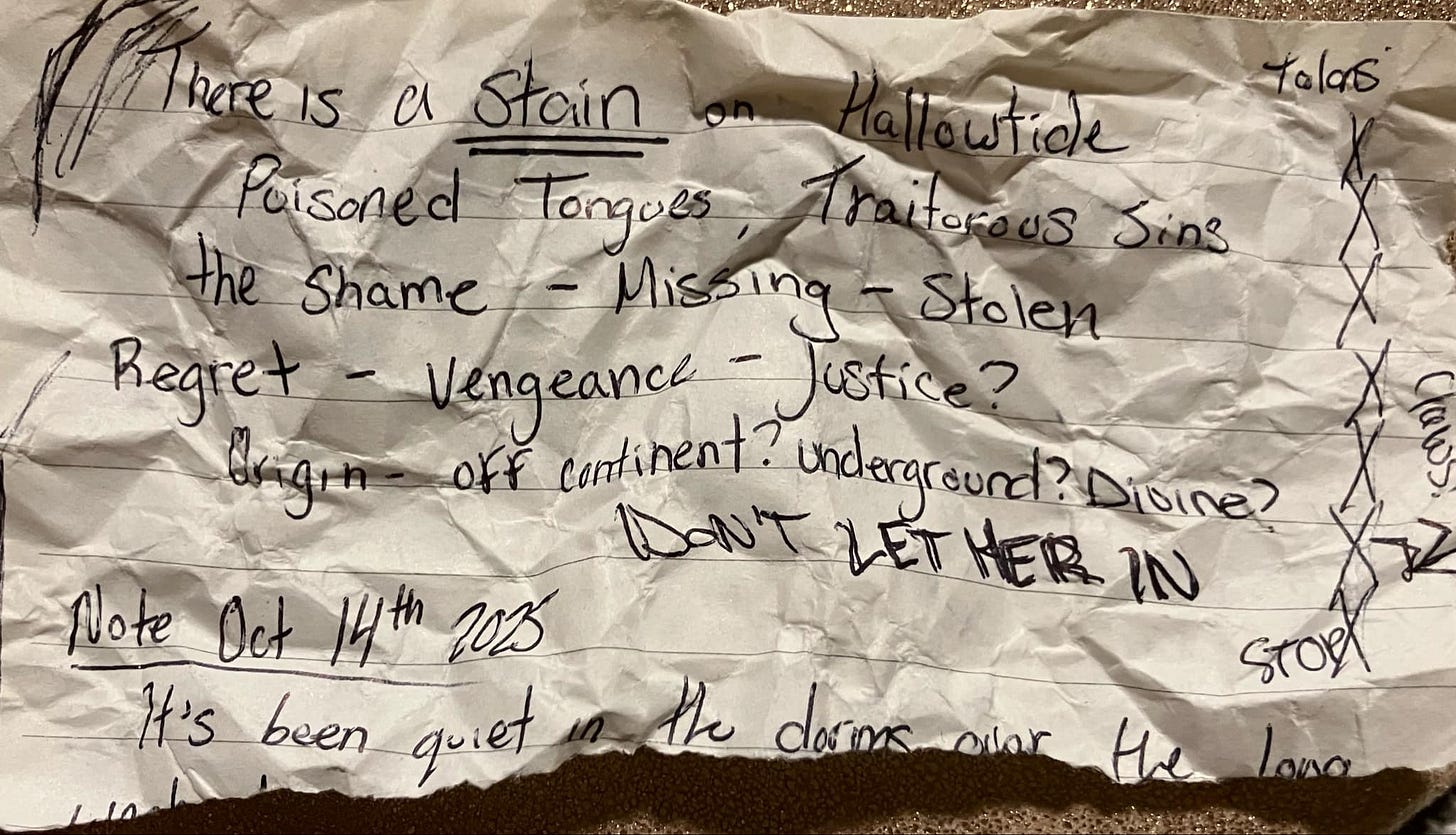 There is a Stain on Hallowtide
Poisoned Tongues, Traitorous Sins
the Shame - Missing - Stolen
Regret - Vengeance - Justice?
Origin - off continent? underground? Divine?
DON'T LET HER IN
Note Oct 14th 2025
It's been quiet in the dorms over the long
Claws?
STOP